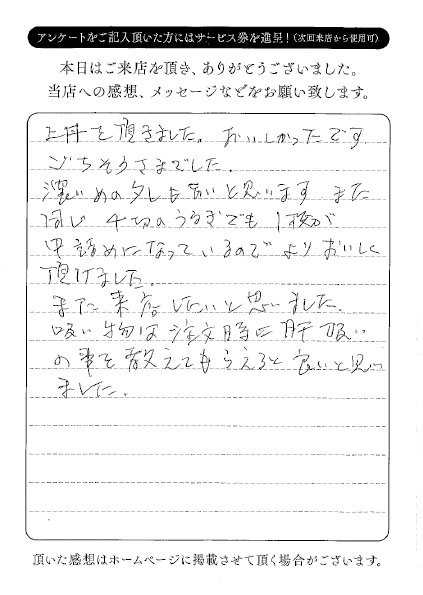 アンケートをご記入頂いた方にはサービス券を進呈！（次回来店から使用可）
本日はご来店を頂き、ありがとうございました。
当店への感想、メッセージなどをお願い致します。
上丼を頂きました。おいしかったです
ごちそうさまでした.
濃いめのタレも良いと思います また
同じ 4切のうなぎでも 1枚が
中詰めになっているので よりおいしく
頂けました.
また来店したいと思いました.
吸い物は注文時に肝吸い
の事を教えてもらえると良いと思い
ました.
頂いた感想はホームページに掲載させて頂く場合がございます。